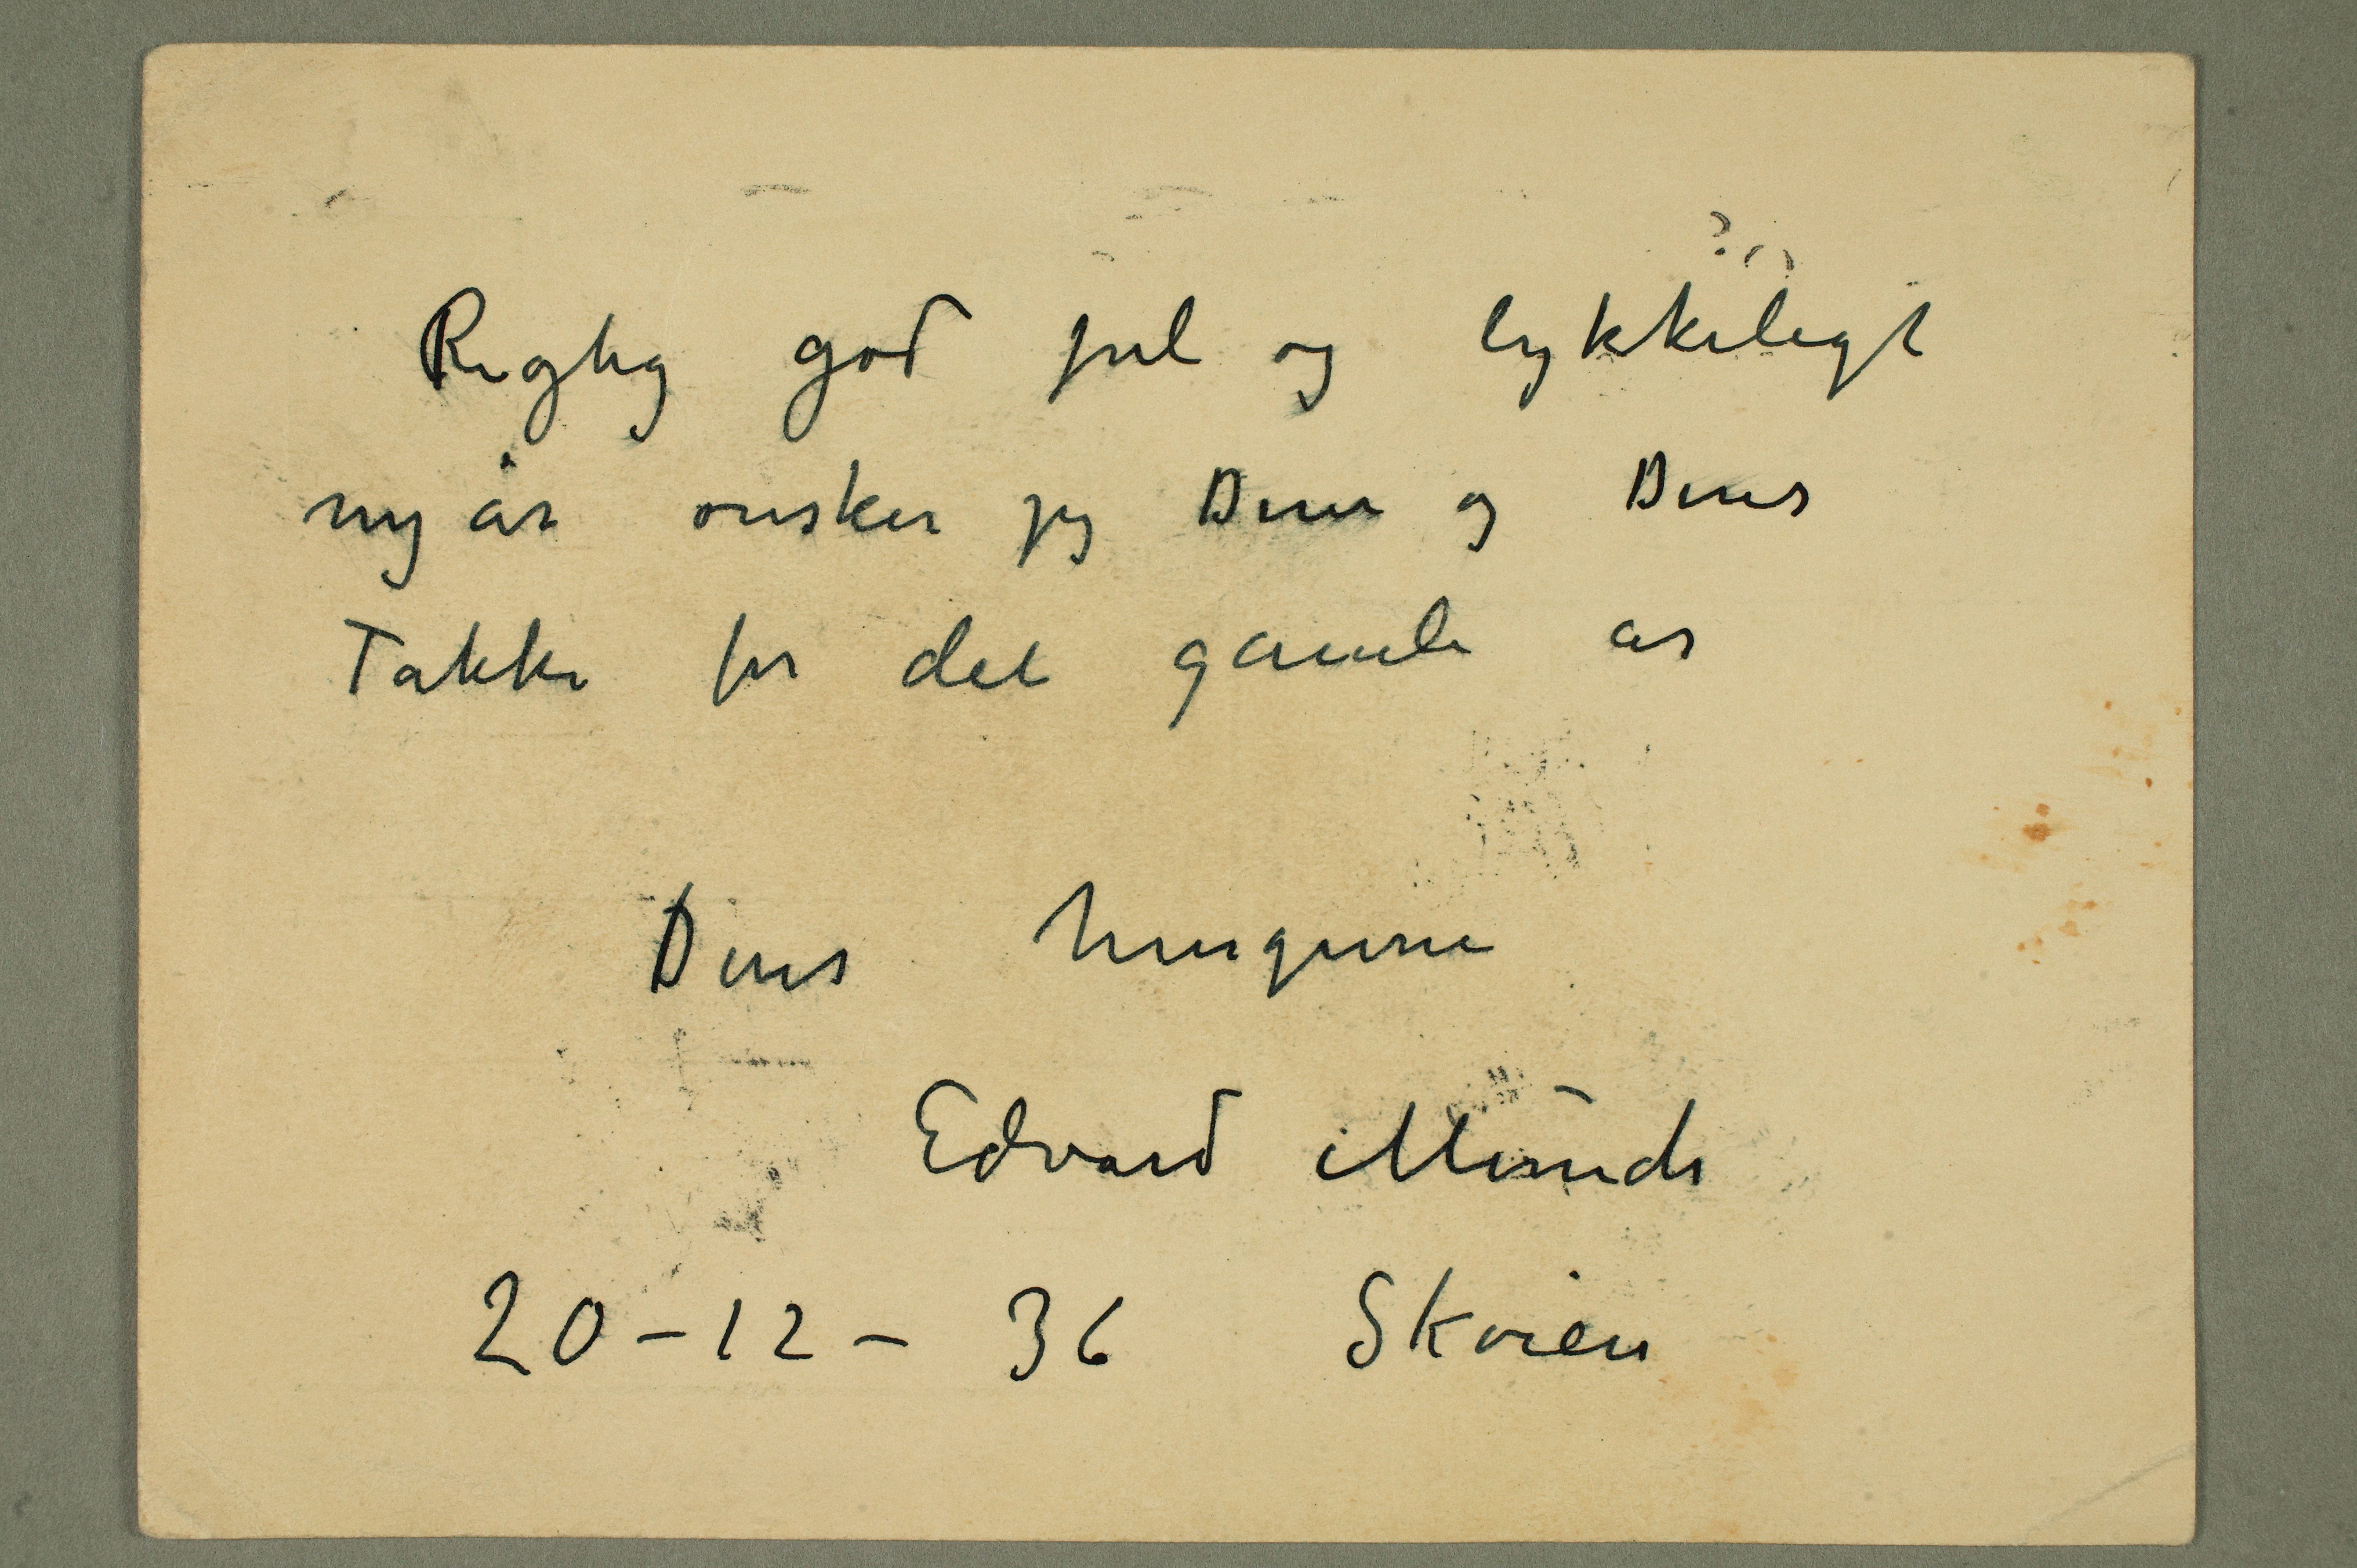 Rigtig god jul og lykkeligt
nyår ønsker jeg Dem og Deres
Takke for det gamle år
Deres hengivne
Edvard Munch
20–12– 36 Skøien